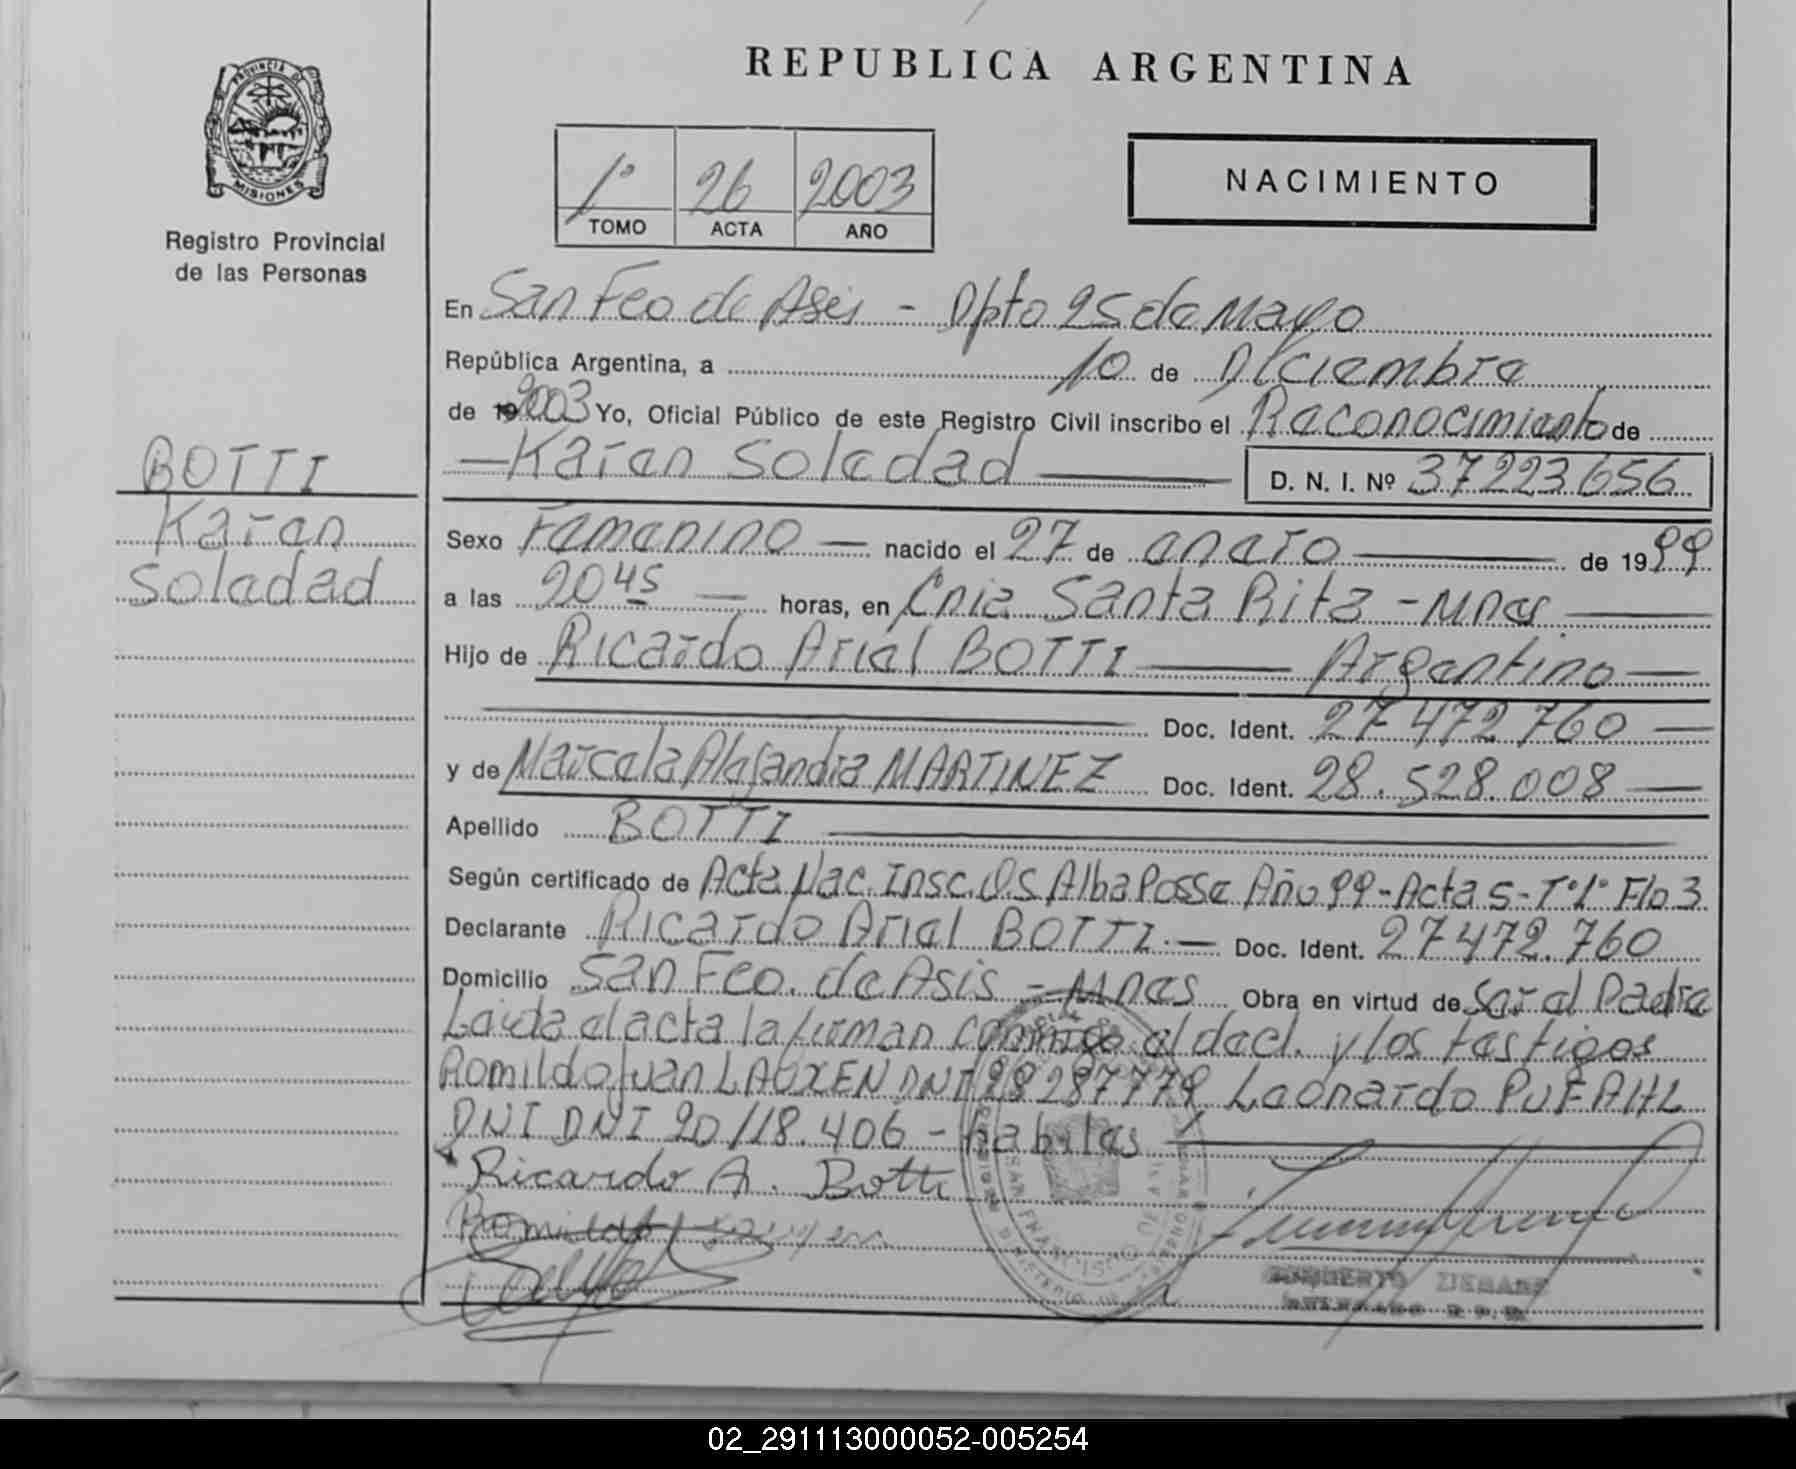 REPUBLICA ARGENTINA
PROVINCIA DE
MISIONES
Registro Provincial
de las Personas
1° 26 2003
TOMO ACTA AÑO
NACIMIENTO
En San Fco de Asis - Dpto 25 de Mayo
República Argentina, a 10 de Diciembre
de 2003 Yo, Oficial Público de este Registro Civil inscribo el Reconocimiento de
Karen Soledad D. N. I. Nº 37223656
BOTTI
Karen
Soledad
Sexo Femenino nacido el 27 de enero de 1999
a las 20 45 horas, en Cnia Santa Rita - Mnes
Hijo de Ricardo Ariel BOTTI Argentino
Doc. Ident. 27 472 760
y de Marcela Alejandra MARTINEZ Doc. Ident. 28.528.008
Apellido BOTTI
Según certificado de Acta Nac. Insc. O.S Alba Posse Año 99 - Acta 5 - T° 1° Flo 3
Declarante Ricardo Ariel BOTTI Doc. Ident. 27472.760
Domicilio San Fco. de Asis - Mnes Obra en virtud de Ser el Padre
Leida el acta la firman conmigo el decl. y los testigos
Romildo Juan LAUXEN DNI 28287779 Leonardo PUFAHL
DNI DNI 20/18.406 - habiles
Ricardo A. Botti
Romildo
02_291113000052-005254